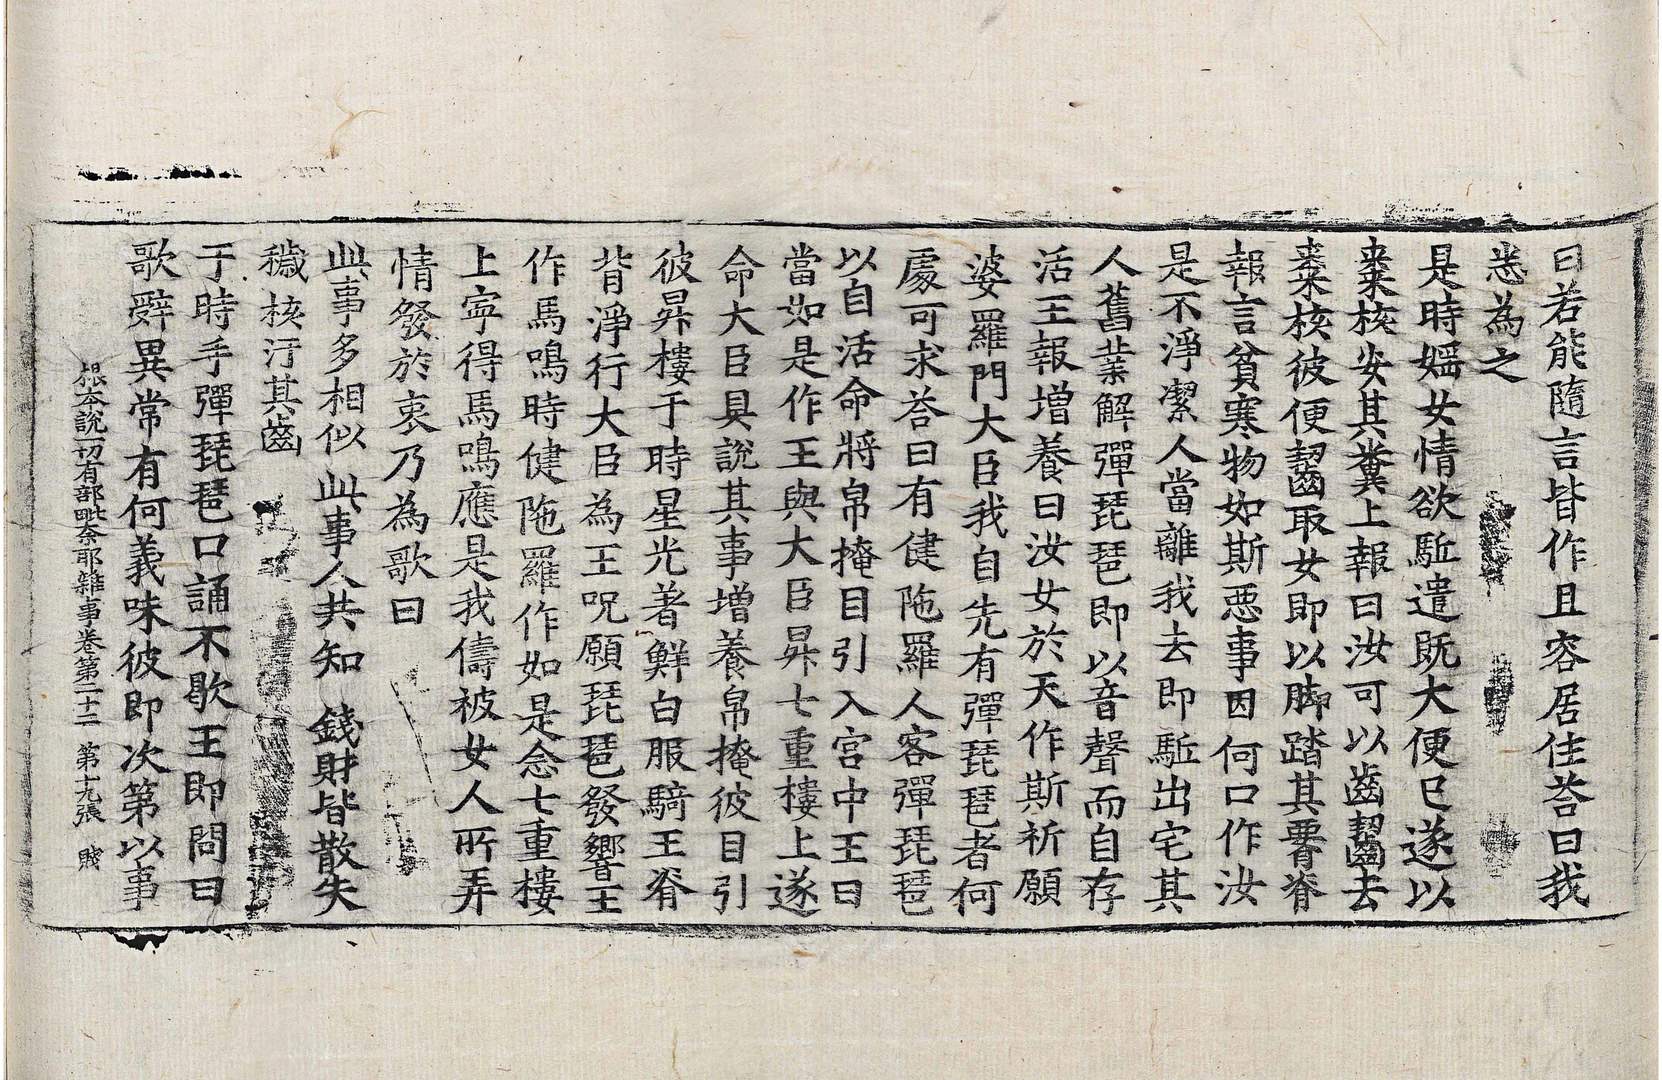 曰若能隨言皆作且容居住荅曰我
悉為之
是時婬女情欲駈遣既大便已遂以
棗核安其糞上報曰汝可以齒齧去
棗核彼便齧取女即以脚踏其要脊
報言貧寒物如斯惡事因何口作汝
是不淨潔人當離我去即駈出宅其
人舊業解彈琵琶即以音聲而自存
活王報增養曰汝女於天作斯祈願
婆羅門大臣我自先有彈琵琶者何
處可求荅曰有健陁羅人客彈琵琶
以自活命將帛掩目引入宮中王曰
當如是作王與大臣昇七重樓上遂
命大臣具說其事增養帛掩彼目引
彼昇樓于時星光著鮮白服騎王脊
背淨行大臣為王呪願琵琶發響王
作馬鳴時健陁羅作如是念七重樓
上寧得馬鳴應是我儔被女人所弄
情發於衷乃為歌曰
此事多相似 此事人共知 錢財皆散失
穢核汙其齒
于時手彈琵琶口誦不歇王即問曰
歌辭異常有何義味彼即次第以事
根本說一切有部毗奈耶雜事卷第二十二 第十九張